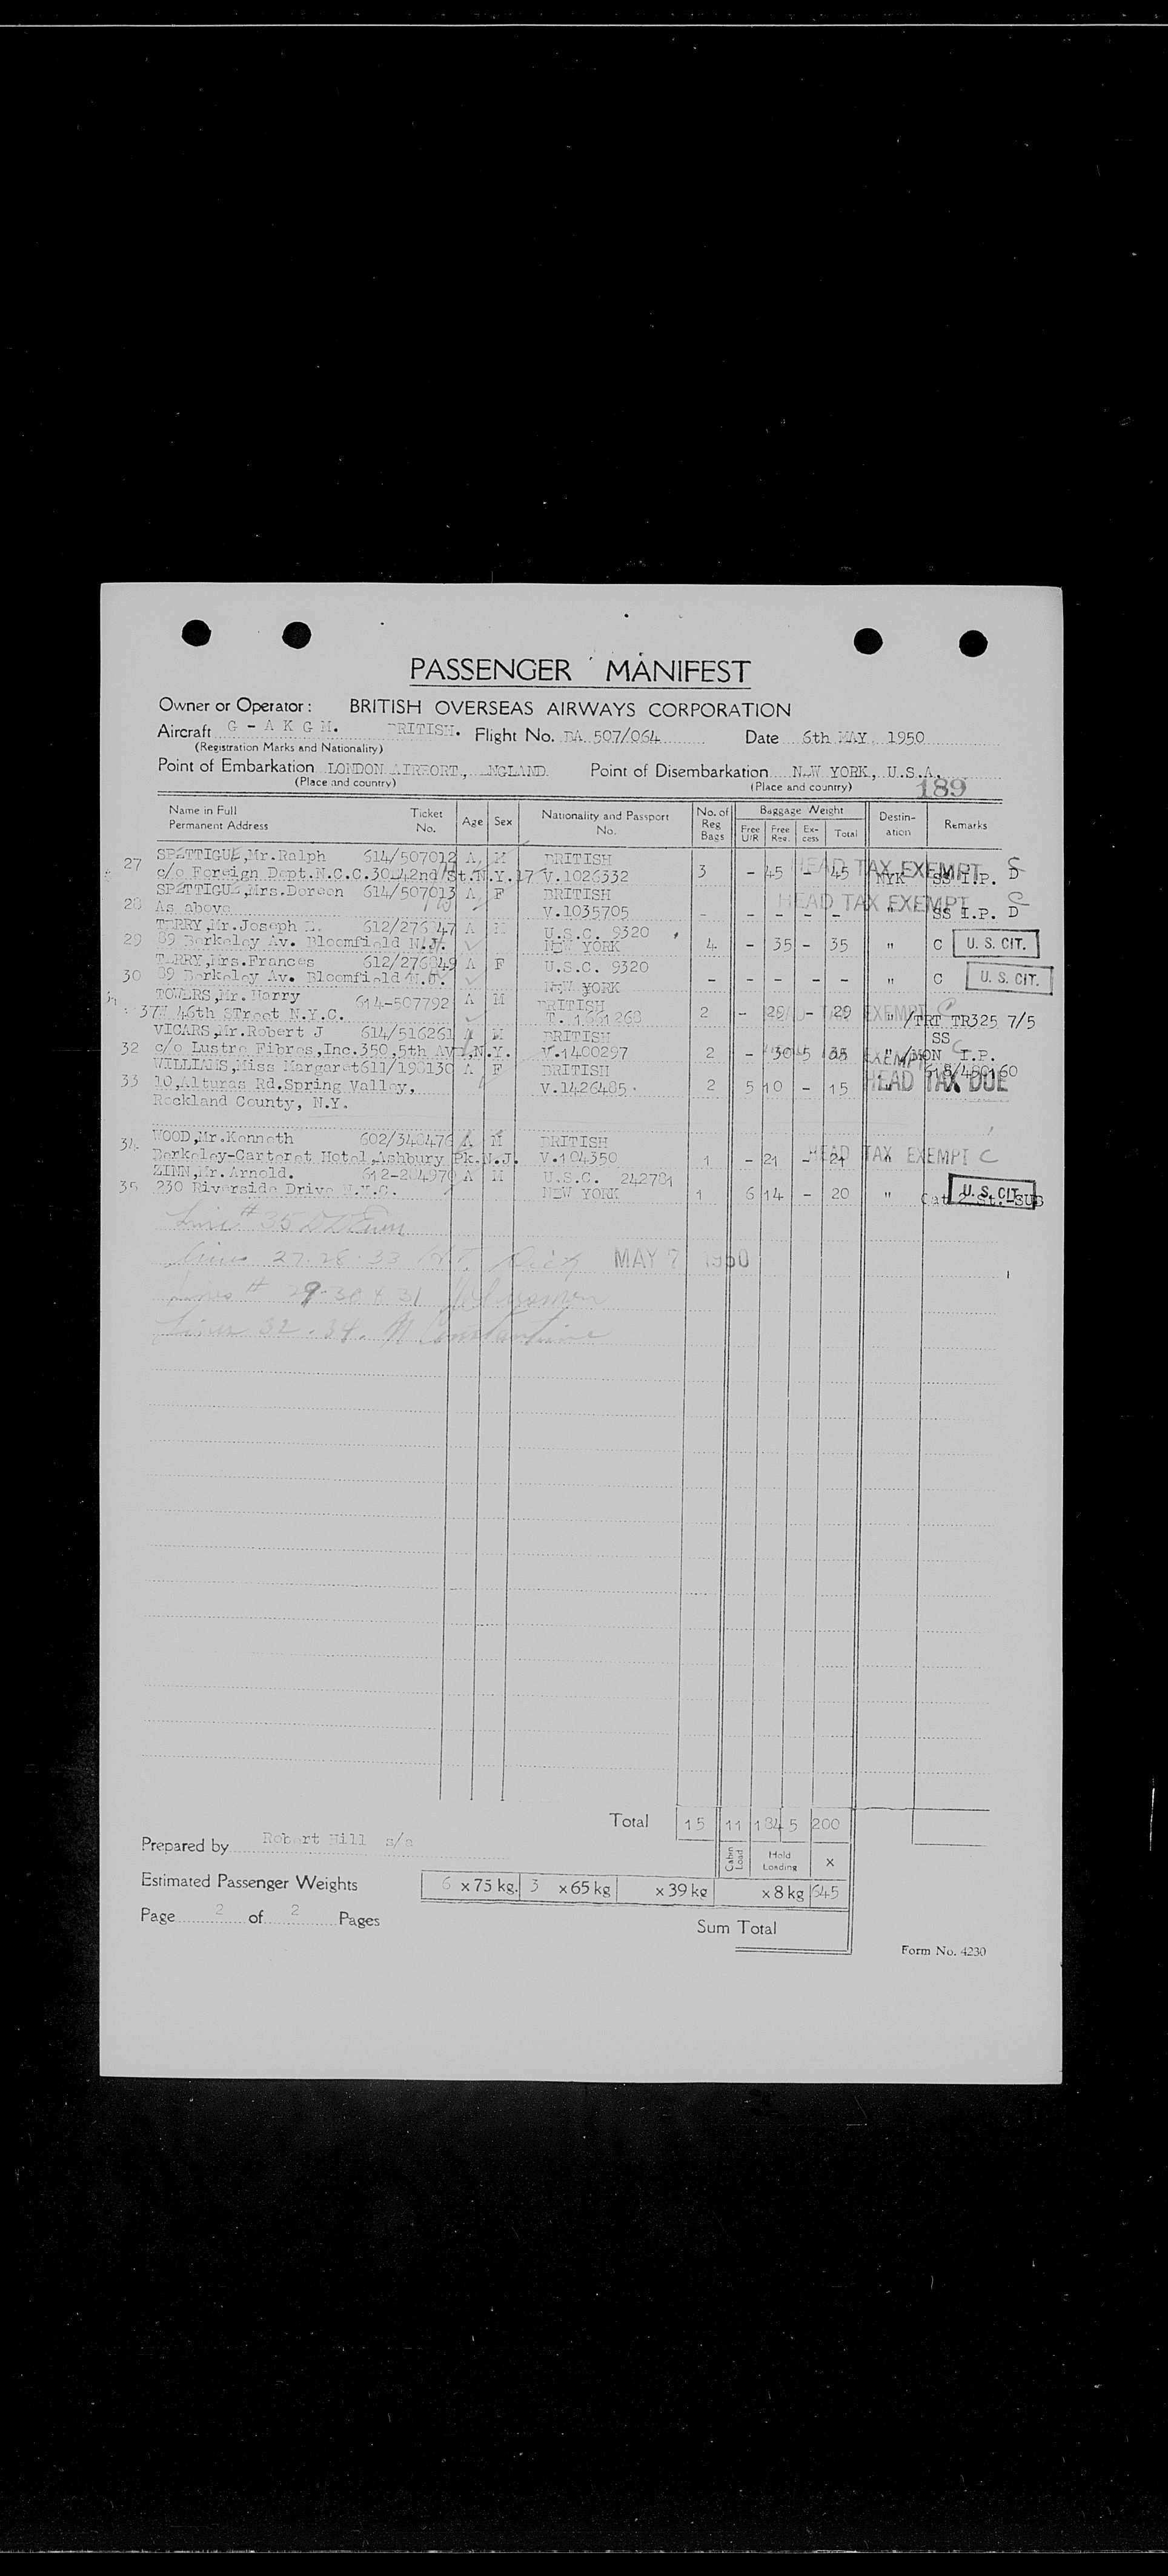 PASSENGER MANIFEST
Owner or Operator: BRITISH OVERSEAS AIRWAYS CORPORATION
Aircraft G - A K G M. BRITISH. Flight No. BA 507/064 Date 6th MAY 1950
(Registration Marks and Nationality)
Point of Embarkation LONDON AIRPORT., ENGLAND. Point of Disembarkation NEW YORK, U.S.A.
(Place and country) (Place and country) 189
Name in Full Permanent Address Ticket No. Age Sex Nationality and Passport No. No. of Reg Bags Baggage Weight Free U/R Free Reg. Ex-cess Total Destin-ation Remarks
27 SPETTIGUE,Mr.Ralph 614/507012 A M BRITISH HEAD TAX EXEMPT C
c/o Foreign Dept.N.C.C.30.42nd St.N.Y.17 V.1026332 3 - 45 - 45 NYK SS I.P. D
SPETTIGUE,Mrs.Doreen 614/507013 A F BRITISH HEAD TAX EXEMPT C
28 As above V.1035705 - - - - - " SS I.P. D
TERRY,Mr.Joseph 612/276 47 A M U.S.C. 9320
29 89 Berkeley Av. Bloomfield N.J. NEW YORK 4 - 35 - 35 " C U. S. CIT.
TERRY,Mrs.Frances 612/276 49 A F U.S.C. 9320
30 89 Berkeley Av. Bloomfield N.J. NEW YORK - - - - - " C U. S. CIT.
TOWERS,Mr. Harry 614-507792 A M BRITISH
37 . 46th STreet N.Y.C. 2 - 29 - 29 EXEMPT C " /TRT TR325 7/5
VICARS,Mr.Robert J 614/516261 A M BRITISH SS
32 c/o Lustre Fibres,Inc.350,5th Av.,N.Y. V.1400297 2 - 30 5 35 EXEMPT C I.P.
WILLIAMS,Miss Margaret 611/198130 A F BRITISH
33 10,Alturas Rd.Spring Valley, V.1426485. 2 5 10 - 15 HEAD TAX DUE
Rockland County, N.Y.
34 WOOD,Mr.Kenneth 602/348476 A M BRITISH
Berkeley-Carteret Hotel,Ashbury Pk.N.J. V.104350 1 - 21 - 21 HEAD TAX EXEMPT C
ZINN,Mr. Arnold. 612-284970 A M U.S.C. 242781
35 230 Riverside Drive N.Y.C. NEW YORK 1 6 14 - 20 " Cat 2 St.-SUB U. S. CIT.
Line # 35
Lines 27-28-33 MAY 7 1950
Lines # 29-30 & 31
Lines 32 - 34. Constantine
Total 15 11 184 5 200
Prepared by Robert Hill s/a
Cabin Load Hold Loading x
Estimated Passenger Weights 6 x 75 kg. 3 x 65 kg x 39 kg x 8 kg 645
Page 2 of 2 Pages
Sum Total
Form No. 4230